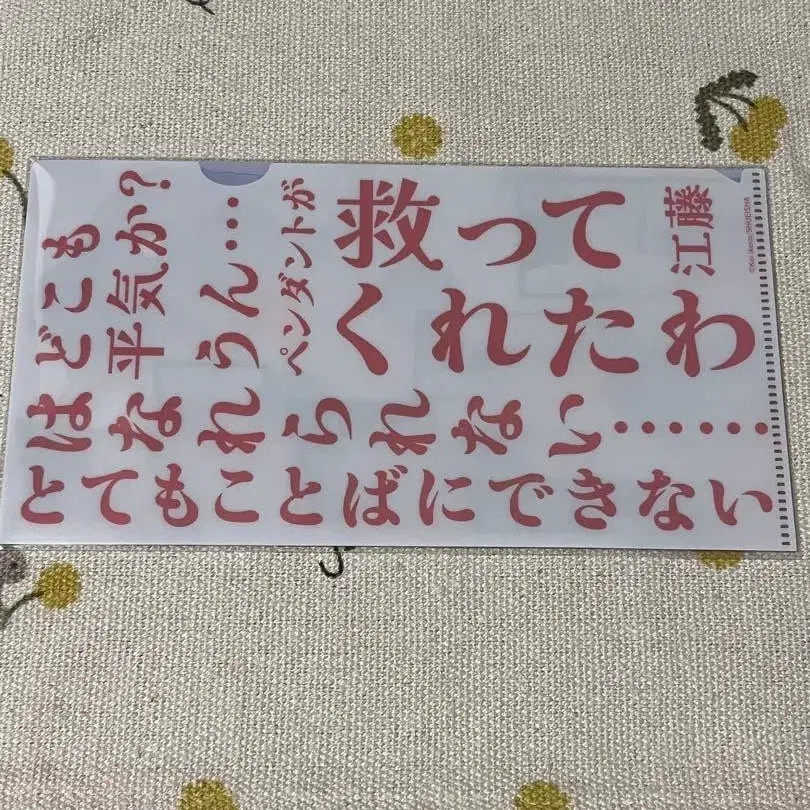 どこも
平気か?
うん…
ペンダントが
救って
くれたわ
江藤
©Koi Ikeno/SHUEISHA
はなれられない……
とてもことばにできない